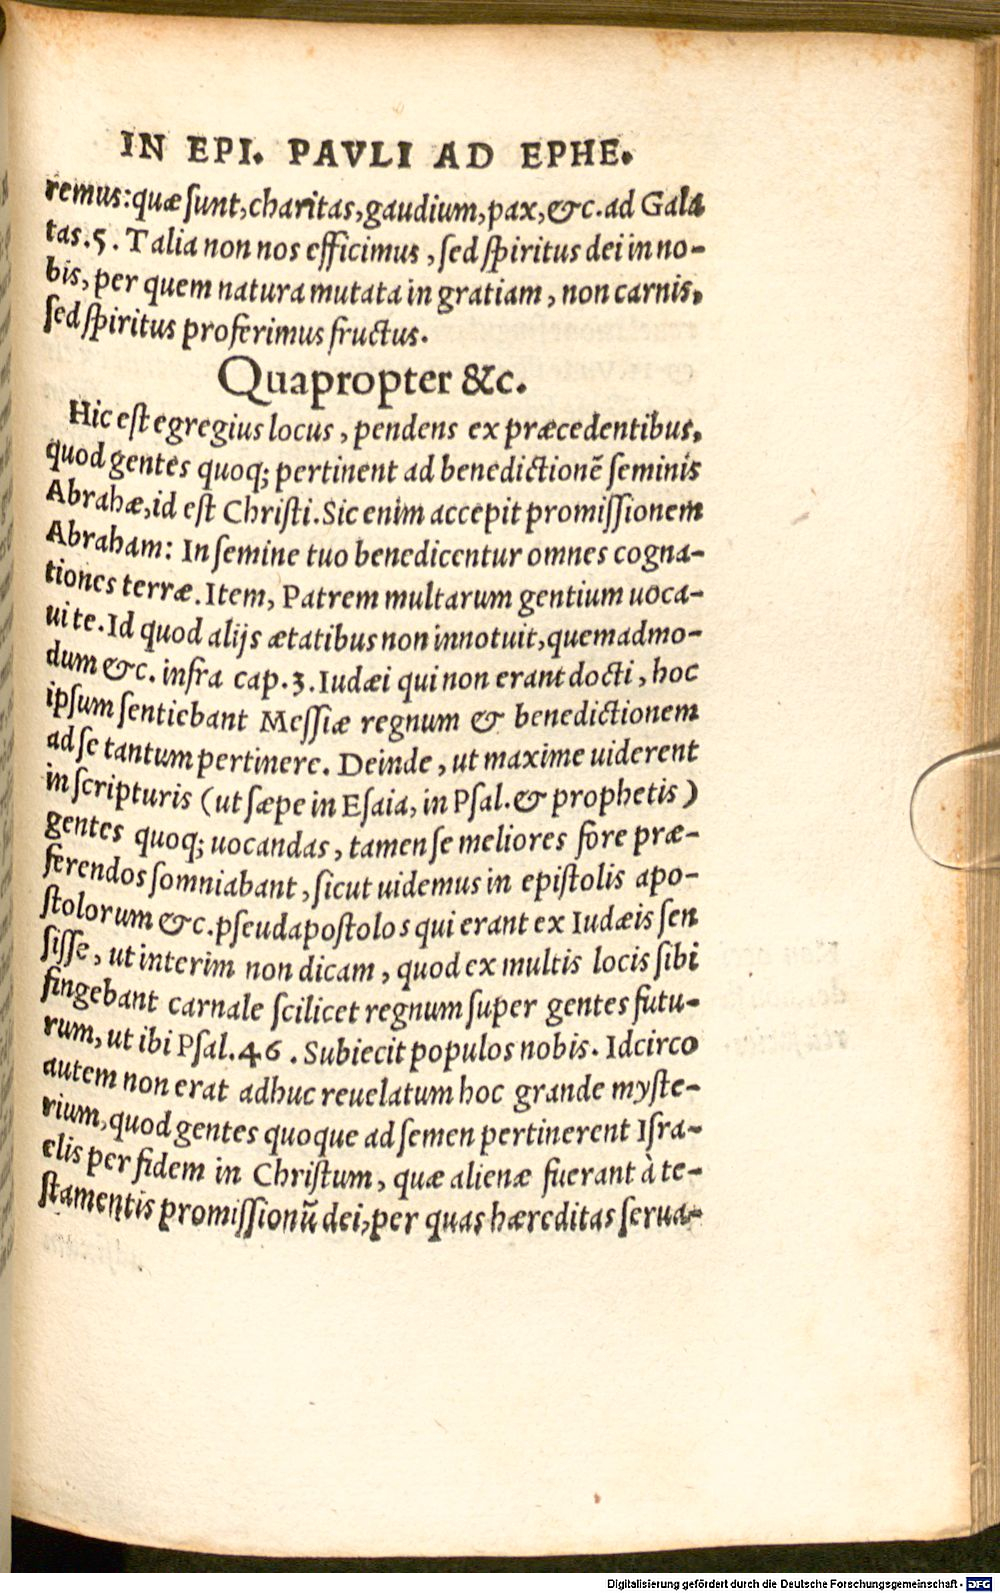 IN EPI. PAVLI AD EPHE.
remus: quæ sunt, charitas, gaudium, pax, &c. ad Gala
tas. 5. Talia non nos efficimus, sed spiritus dei in no-
bis, per quem natura mutata in gratiam, non carnis,
sed spiritus proferimus fructus.
Quapropter &c.
Hic est egregius locus, pendens ex præcedentibus,
quod gentes quoq; pertinent ad benedictionẽ seminis
Abrahæ, id est Christi. Sic enim accepit promissionem
Abraham: In semine tuo benedicentur omnes cogna-
tiones terræ. Item, Patrem multarum gentium uoca-
ui te. Id quod alijs ætatibus non innotuit, quemadmo-
dum &c. infra cap. 3. Iudæi qui non erant docti, hoc
ipsum sentiebant Messiæ regnum & benedictionem
ad se tantum pertinere. Deinde, ut maxime uiderent
in scripturis (ut sæpe in Esaia, in Psal. & prophetis)
gentes quoq; uocandas, tamen se meliores fore præ-
ferendos somniabant, sicut uidemus in epistolis apo-
stolorum &c. pseudapostolos qui erant ex Iudæis sen
sisse, ut interim non dicam, quod ex multis locis sibi
fingebant carnale scilicet regnum super gentes futu-
rum, ut ibi Psal. 46. Subiecit populos nobis. Idcirco
autem non erat adhuc reuelatum hoc grande myste-
rium, quod gentes quoque ad semen pertinerent Isra-
elis per fidem in Christum, quæ alienæ fuerant à te-
stamentis promissionũ dei, per quas hæreditas serua-
Digitalisierung gefördert durch die Deutsche Forschungsgemeinschaft - DFG